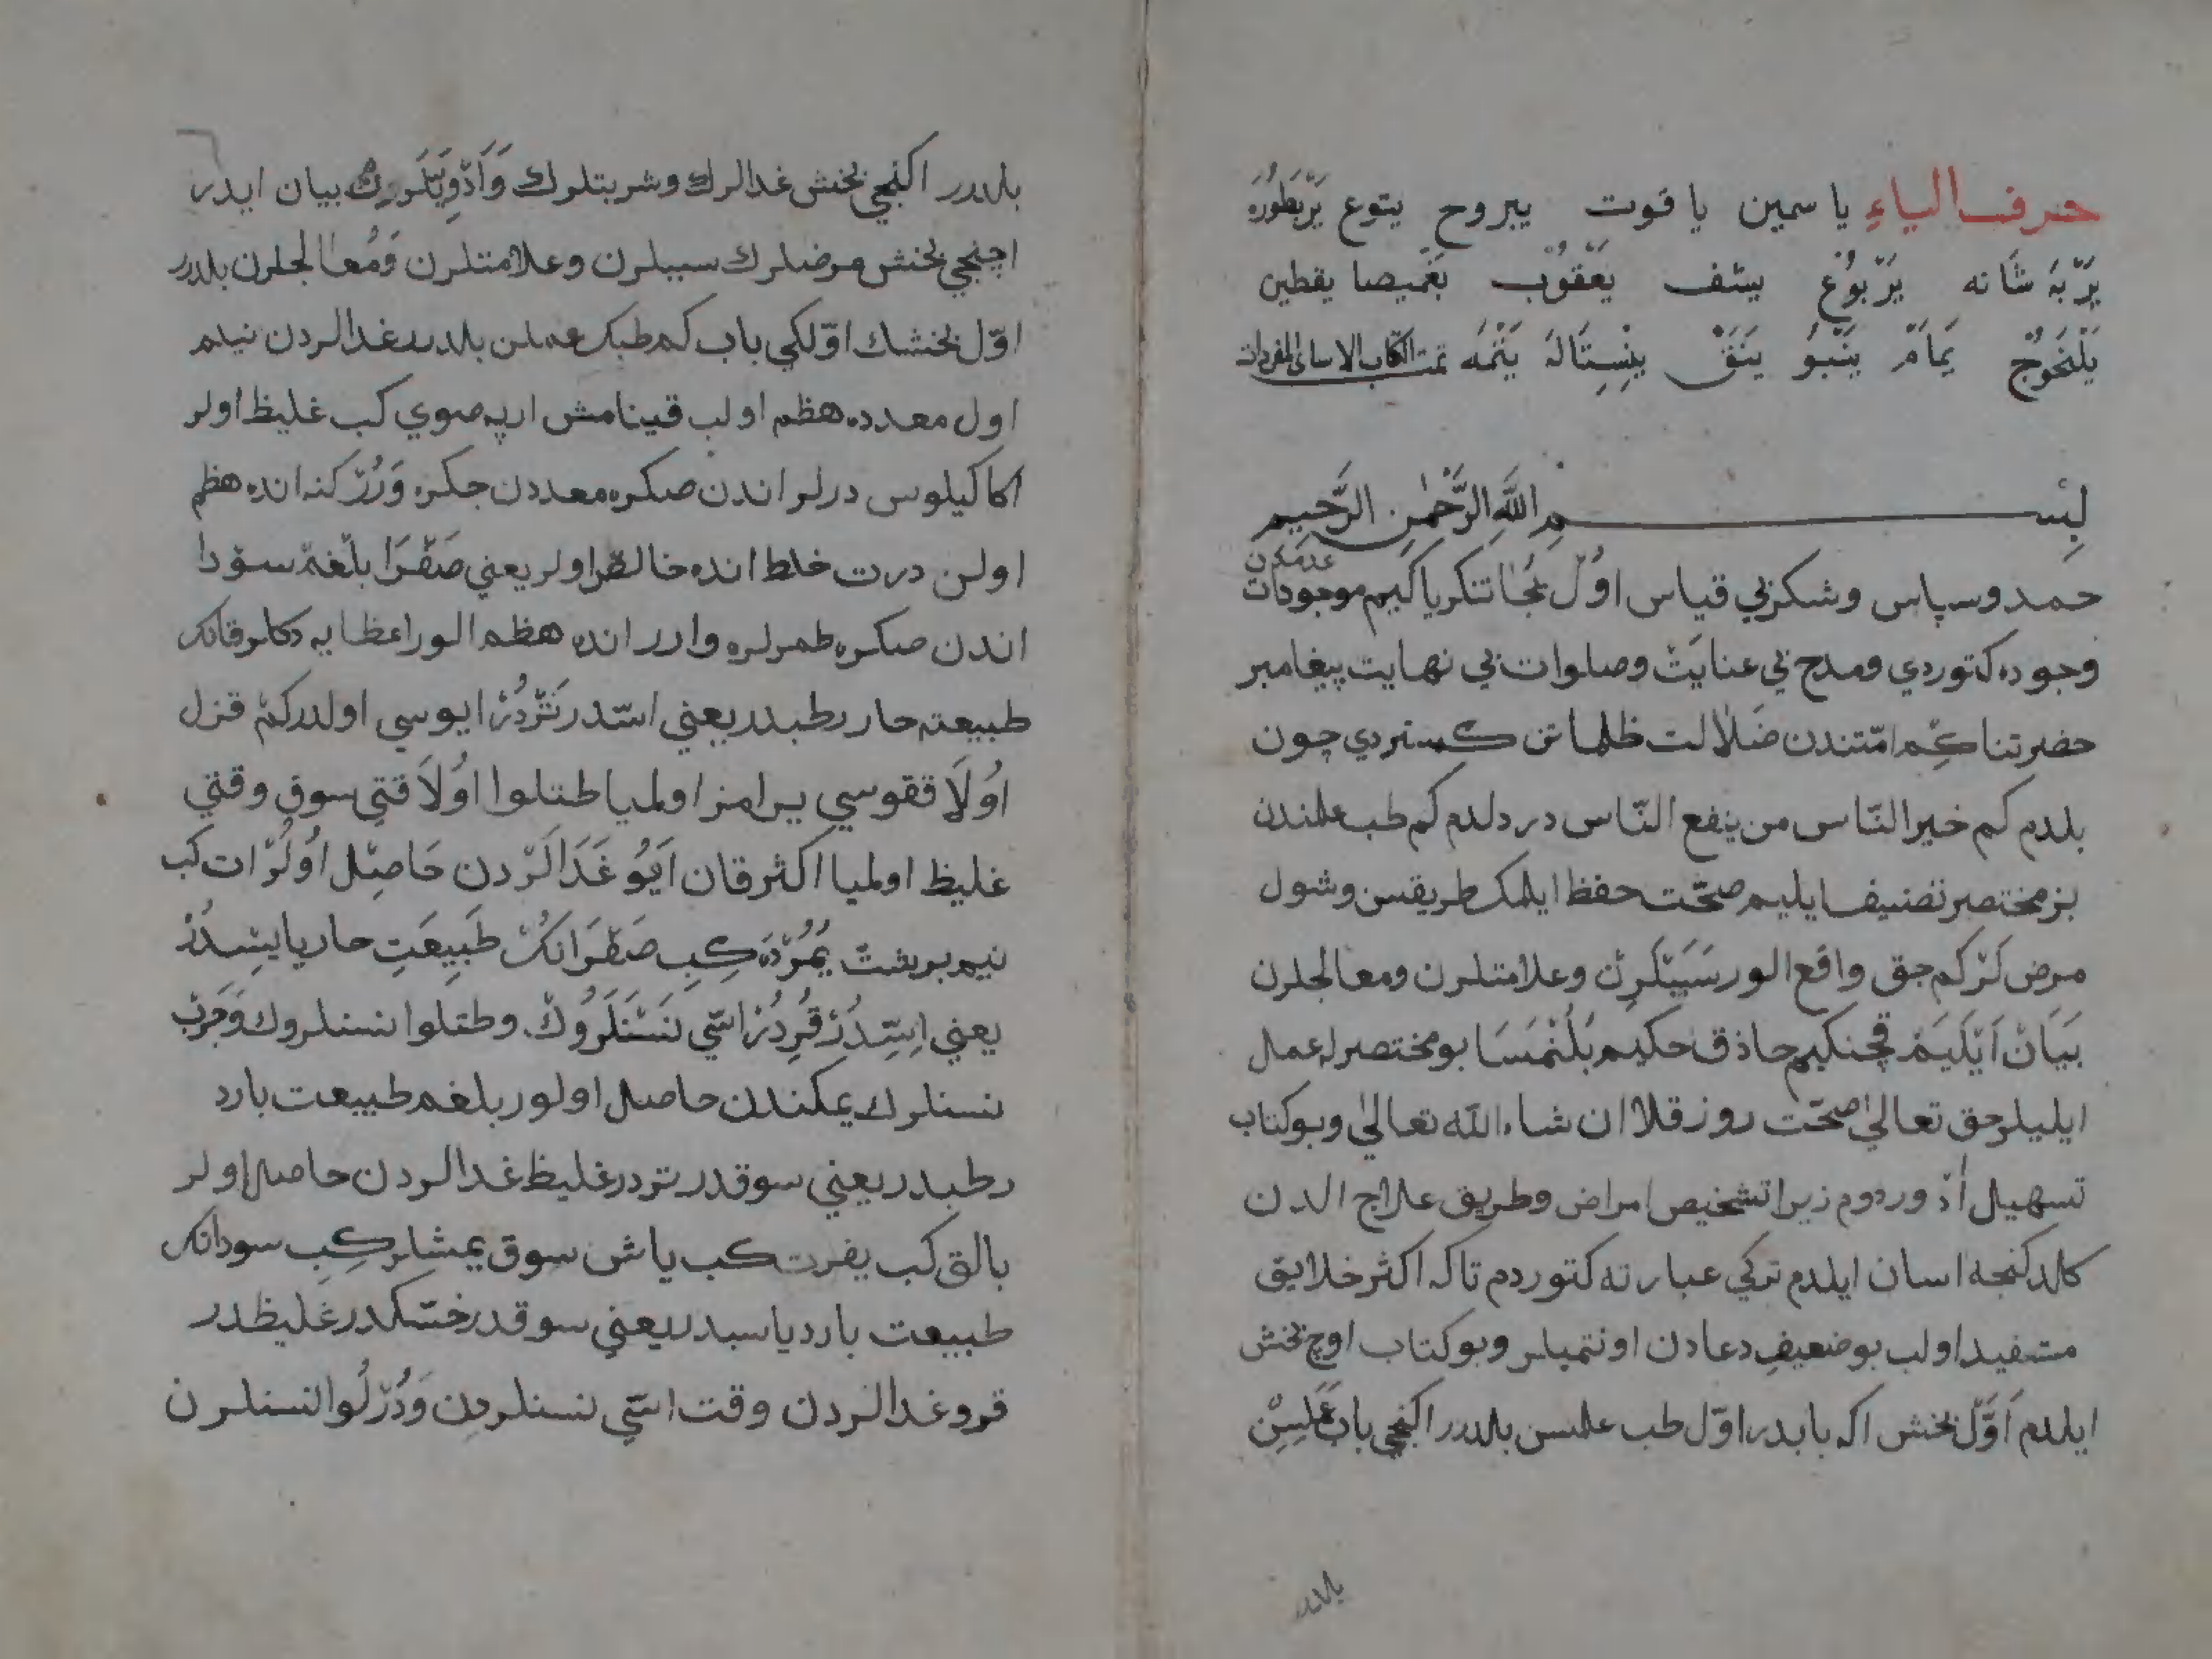 حرف الياء ياسمين ياقوت يبروح يتوع يَرْبَطُورَه
يَرْبَه شَانه يَرْبُوع يشف يَعْقوُب يغميصا يقطين
يَلَنْجَوُج يَمَام يَنْبوُ يَنَق يِنِسِتَالَه يَتْمَه تمت الكتاب الاسامى المفردات
بسم الله الرحمن الرحيم
حمد وسپاس وشكر بي قياس اوُل يُجَا تنكريا كيم موجودات
عدمدن
وجوده كتوردي ومدح بي عنايت وصلوات بي نهايت پيغامبر
حضرتنا كِم امّتندن ضلالت ظلماتن كيدردي چون
بلدم كم خير النّاس من ينفع النّاس در دلدم كم طب علمندن
بر مختصر تصنيف ايليم صحّت حفظ ايلمك طريقسن وشول
مرض لَرْ كم جق واقع الور سَبَبْلَرِن وعلامتلرن ومعالجلرن
بَيَانْ اَيْلَيَمْ قچنكيم حاذق حكيم بُلُنْمَسَا بو مختصر له عمل
ايليلر حق تعالى صحّت روز قلا ان شاء الله تعالى وبو كتاب
تسهيل اَدْ وردوم زيرا تشخيص امراض وطريق علاج الدن
كالدكنجه اسان ايلدم تركي عبارته كتوردم تاكه اكثر خلايق
مستفيد اولب بو ضعيفِ دعادن اونتميلر وبو كتاب اوچ بخش
ايلدم اَوَّل بخش اكه بابدر اوّل طب علمسن بلدرر اكنجي باب عَمَلِسِن
بلدرر
بلدرر اكنجي بخش غدالرك وشربتلرك وَاَدْوِيَتْلَرِك بيان ايدر
اچنجي بخش مرضلرك سببلرن وعلامتلرن وَمُعالجلرن بلدرر
اوّل بخشك اوّلكي باب كم طبك عملن بلدرر غدالردن نيلم
اول معدده هظم اولب قينامش ارپه صوي كب غليظ اولر
اكا كيلوس درلر اندن صكره معددن جكره وَرُرْ كنه انده هظم
اولن درت خلط انده خالطر اولر يعني صَفْرَا بلْغم سوْدا
اندن صكره طمرلره وارر انده هظم الور اعظايه دكلر قانك
طبيعته حار رطبدر يعني اسّدر تَرْدُرْ ايوسي اولدر كم قزل
اوُلَا قفوسي يرامز اولميا طتلوا اوُلَا قتي سوق وقتي
غليظ اولميا اكثر قان اَيوُ غَدَالَرْدن حَاصِل اوُلُرْ ات كب
نيم برشت يُمُرْدَه كِبِ صَفْرَانَكْ طَبِيعَتِ حار يابسْدُرْ
يعني اِسّدِرْ قُرِدُرْ اسّي نَسْنَلَرُوكْ وطتلوا نسنلروك وَچَرْب
نسنلرك يمكندن حاصل اولور بلغم طبيعت بارد
رطبدر يعني سوقدر تردر غليظ غدالردن حاصل اولر
بالق كب يغرت كب ياش سوق يمشلر كِبِ سودانك
طبيعت بارد يابسدر يعني سوقدر خشكدر غليظدر
قرو غدالردن وقت اسّي نسنلردن وَدُزْلُوا نسنلرن